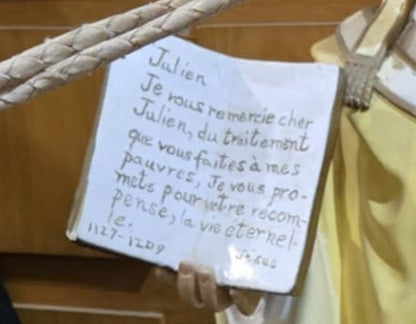 Julien
Je vous remercie cher
Julien, du traitement
que vous faites à mes
pauvres, Je vous pro-
mets pour votre récom-
pense, la vie eternel-
le.
1127-1209 Jésus